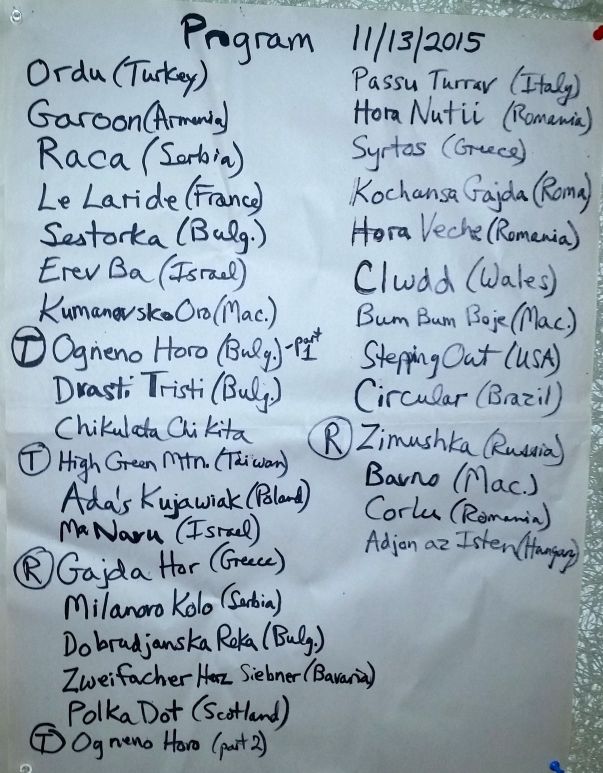 Program 11/13/2015
Ordu (Turkey)
Garoon (Armenia)
Raca (Serbia)
Le Laride (France)
Sestorka (Bulg.)
Erev Ba (Israel)
Kumanovsko Oro (Mac.)
T Ogneno Horo (Bulg.) - part 1
Drasti Tristi (Bulg.)
Chikulata Chikita
T High Green Mtn. (Taiwan)
Ada's Kujawiak (Poland)
Ma Navu (Israel)
R Gajda Hor (Greece)
Milanovo Kolo (Serbia)
Dobrudjanska Reka (Bulg.)
Zweifacher Herz Siebner (Bavaria)
Polka Dot (Scotland)
T Ogneno Horo (part 2)
Passu Turrar (Italy)
Hora Nutii (Romania)
Syrtos (Greece)
Kochansa Gajda (Roma)
Hora Veche (Romania)
Clwdd (Wales)
Bum Bum Boje (Mac.)
Stepping Out (USA)
Circular (Brazil)
R Zimushka (Russia)
Bavno (Mac.)
Corlu (Romania)
Adjon az Isten (Hungary)